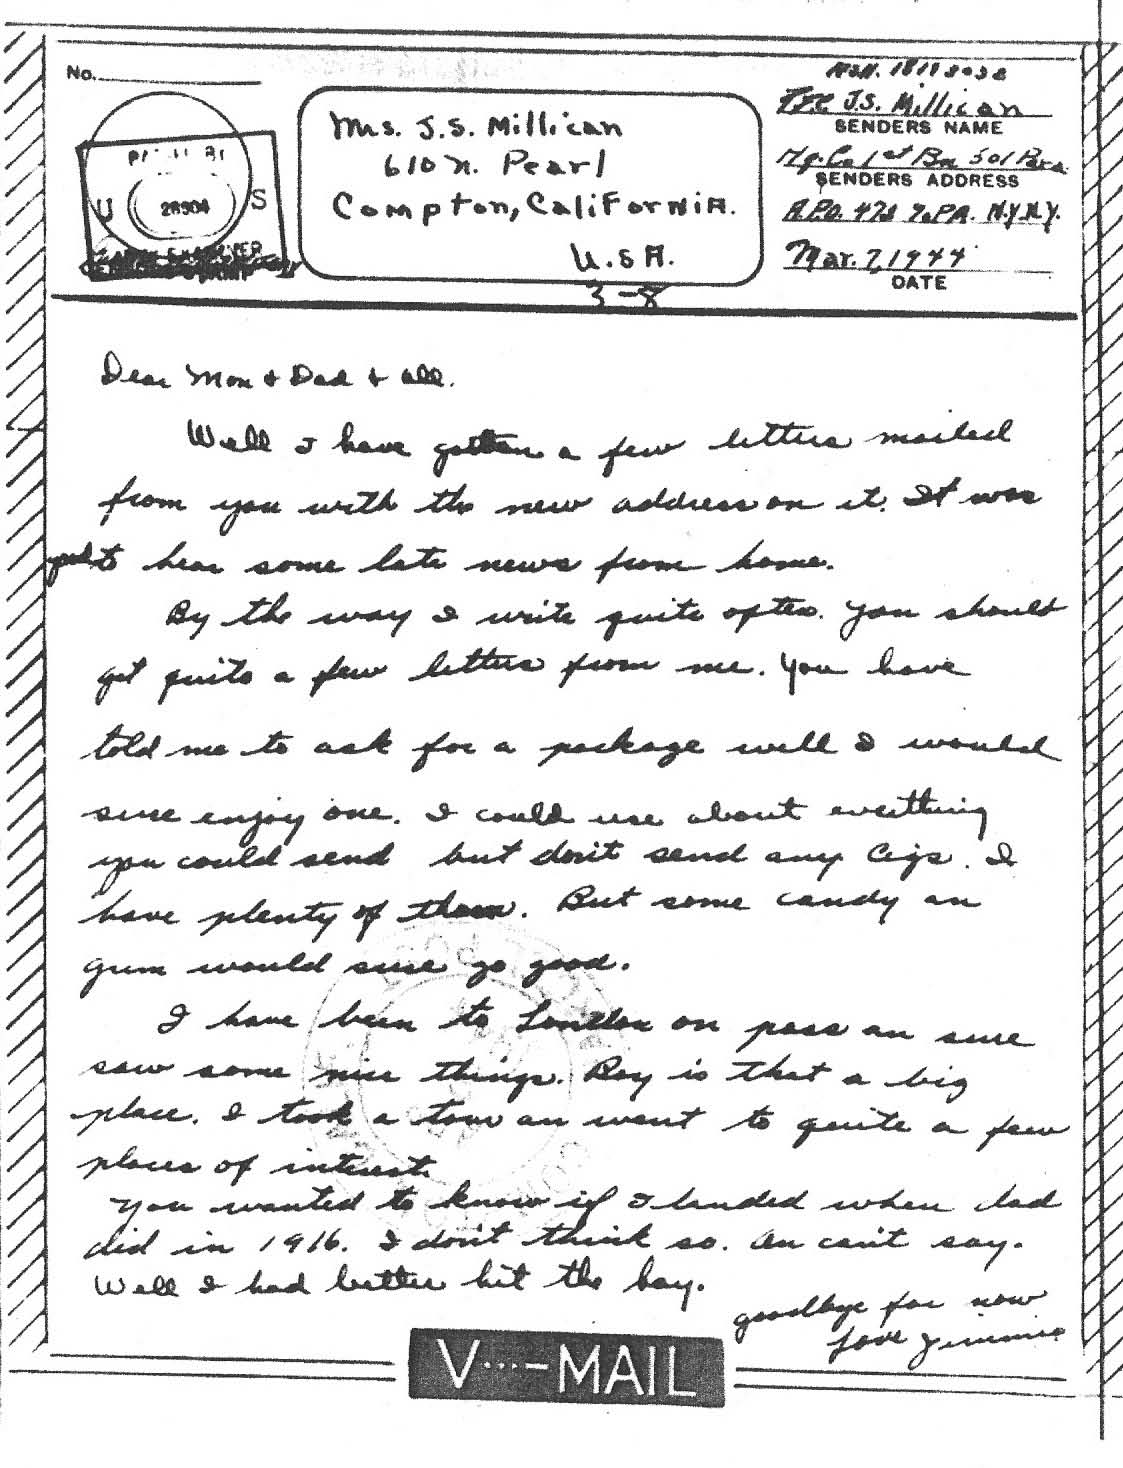 No.
Mrs. J.S. Millican
610 N. Pearl
Compton, California.
U.S.A.
3-8
PASSED BY
U 28904 S
ARMY EXAMINER
ASN.
Pfc J.S. Millican
SENDERS NAME
Hq. Co 1st Bn 501 Para.
SENDERS ADDRESS
A.P.O. 472 % P.M. N.Y.N.Y.
Mar. 7, 1944
DATE
Dear Mom & Dad & all.
Well I have gotten a few letters mailed
from you with the new address on it. It was
good to hear some late news from home.
By the way I write quite often. You should
get quite a few letters from me. You have
told me to ask for a package well I would
sure enjoy one. I could use about eveithing
you could send but don't send any Cigs. I
have plenty of them. But some candy an
gum would sure go good.
I have been to London on pass an sure
saw some nice things. Boy is that a big
place. I took a tour an went to quite a few
places of interest.
You wanted to know if I landed when dad
did in 1916. I don't think so. An can't say.
Well I had better hit the hay.
goodbye for now
Love Jimmie
V···–MAIL